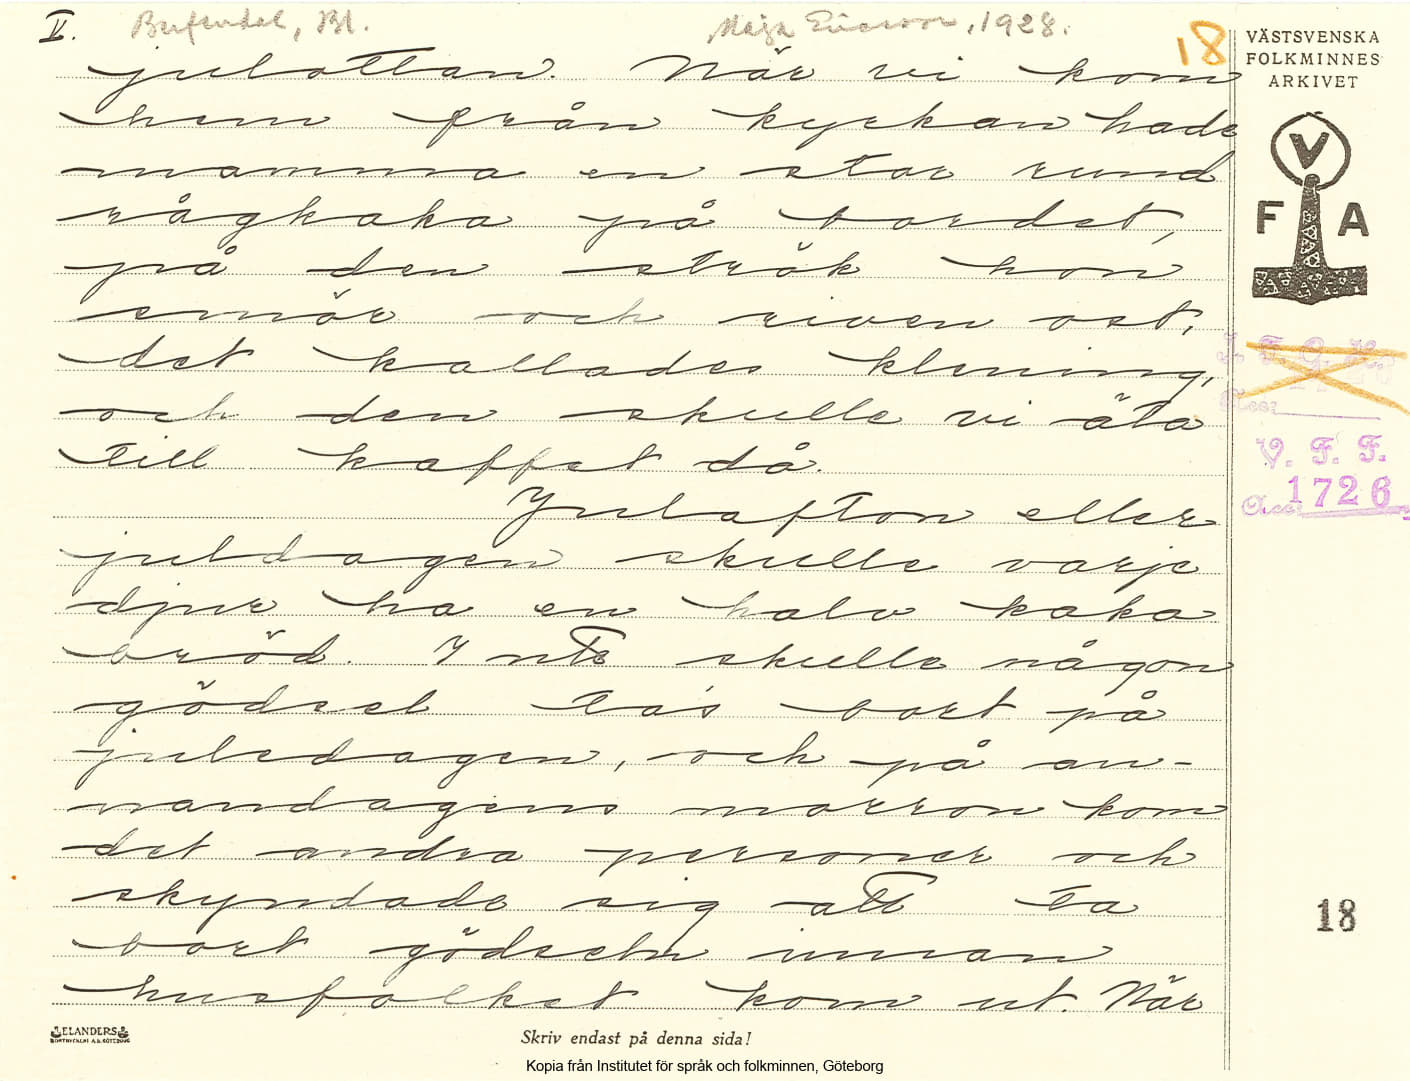 II.
Maja Ericsson, 1928.
18
VÄSTSVENSKA
FOLKMINNES
ARKIVET
V
F A
julottan. När vi kom
hem från kyrkan hade
mamma en stor rund
rågkaka på bordet,
på den strök hon
smör och riven ost,
det kallades klining,
och den skulle vi äta
till kaffet då.
Julafton eller
juldagen skulle varje
djur ha en halv kaka
bröd. Inte skulle någon
gödsel tas bort på
juledagen, och på an-
nandagens morron kom
det andra personer och
skyndade sig att ta
bort gödseln innan
husfolket kom ut. När
I. F. G. H.
Acc:
V. F. F.
Acc: 1726
18
ELANDERS
Skriv endast på denna sida!
Kopia från Institutet för språk och folkminnen, Göteborg